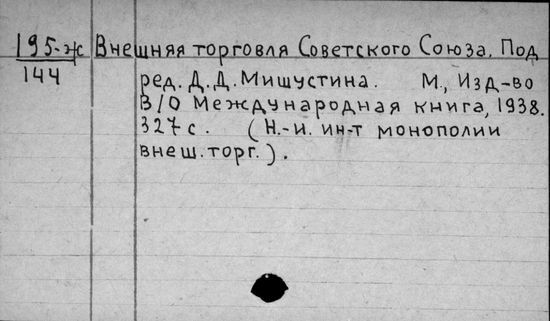 195-ж Внешняя торговля Советского Союза. Под
144
ред. Д.Д. Мишустина. М., Изд-во
В/О Международная книга, 1938.
327 с. (Н.-и. ин-т монополии
внеш. торг.).